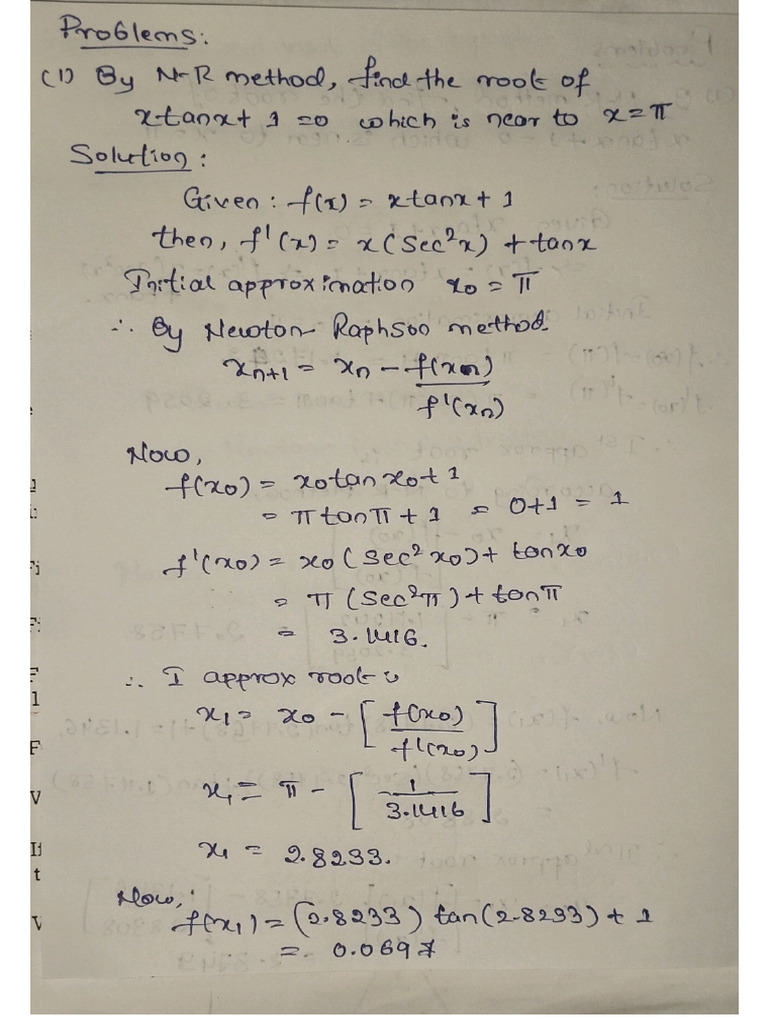 Problems:
(1) By N-R method, find the root of
xtanx + 1 =0 which is near to x=π
Solution:
Given: f(x) = xtanx + 1
then, f'(x) = x(Sec²x) + tanx
Initial approximation x₀ = π
∴ By Newton-Raphson method
xₙ₊₁ = xₙ - f(xₙ)
f'(xₙ)
Now,
f(x₀) = x₀tanx₀+1
= π tanπ + 1 = 0+1 = 1
f'(x₀) = x₀(Sec²x₀)+ tanx₀
= π (Sec²π) + tanπ
= 3.1416.
∴ I approx root is
x₁ = x₀ - [f(x₀)
f'(x₀)]
x₁ = π - [1
3.1416]
x₁ = 2.8233.
Now,
f(x₁) = (2.8233) tan(2.8233) + 1
= 0.0697